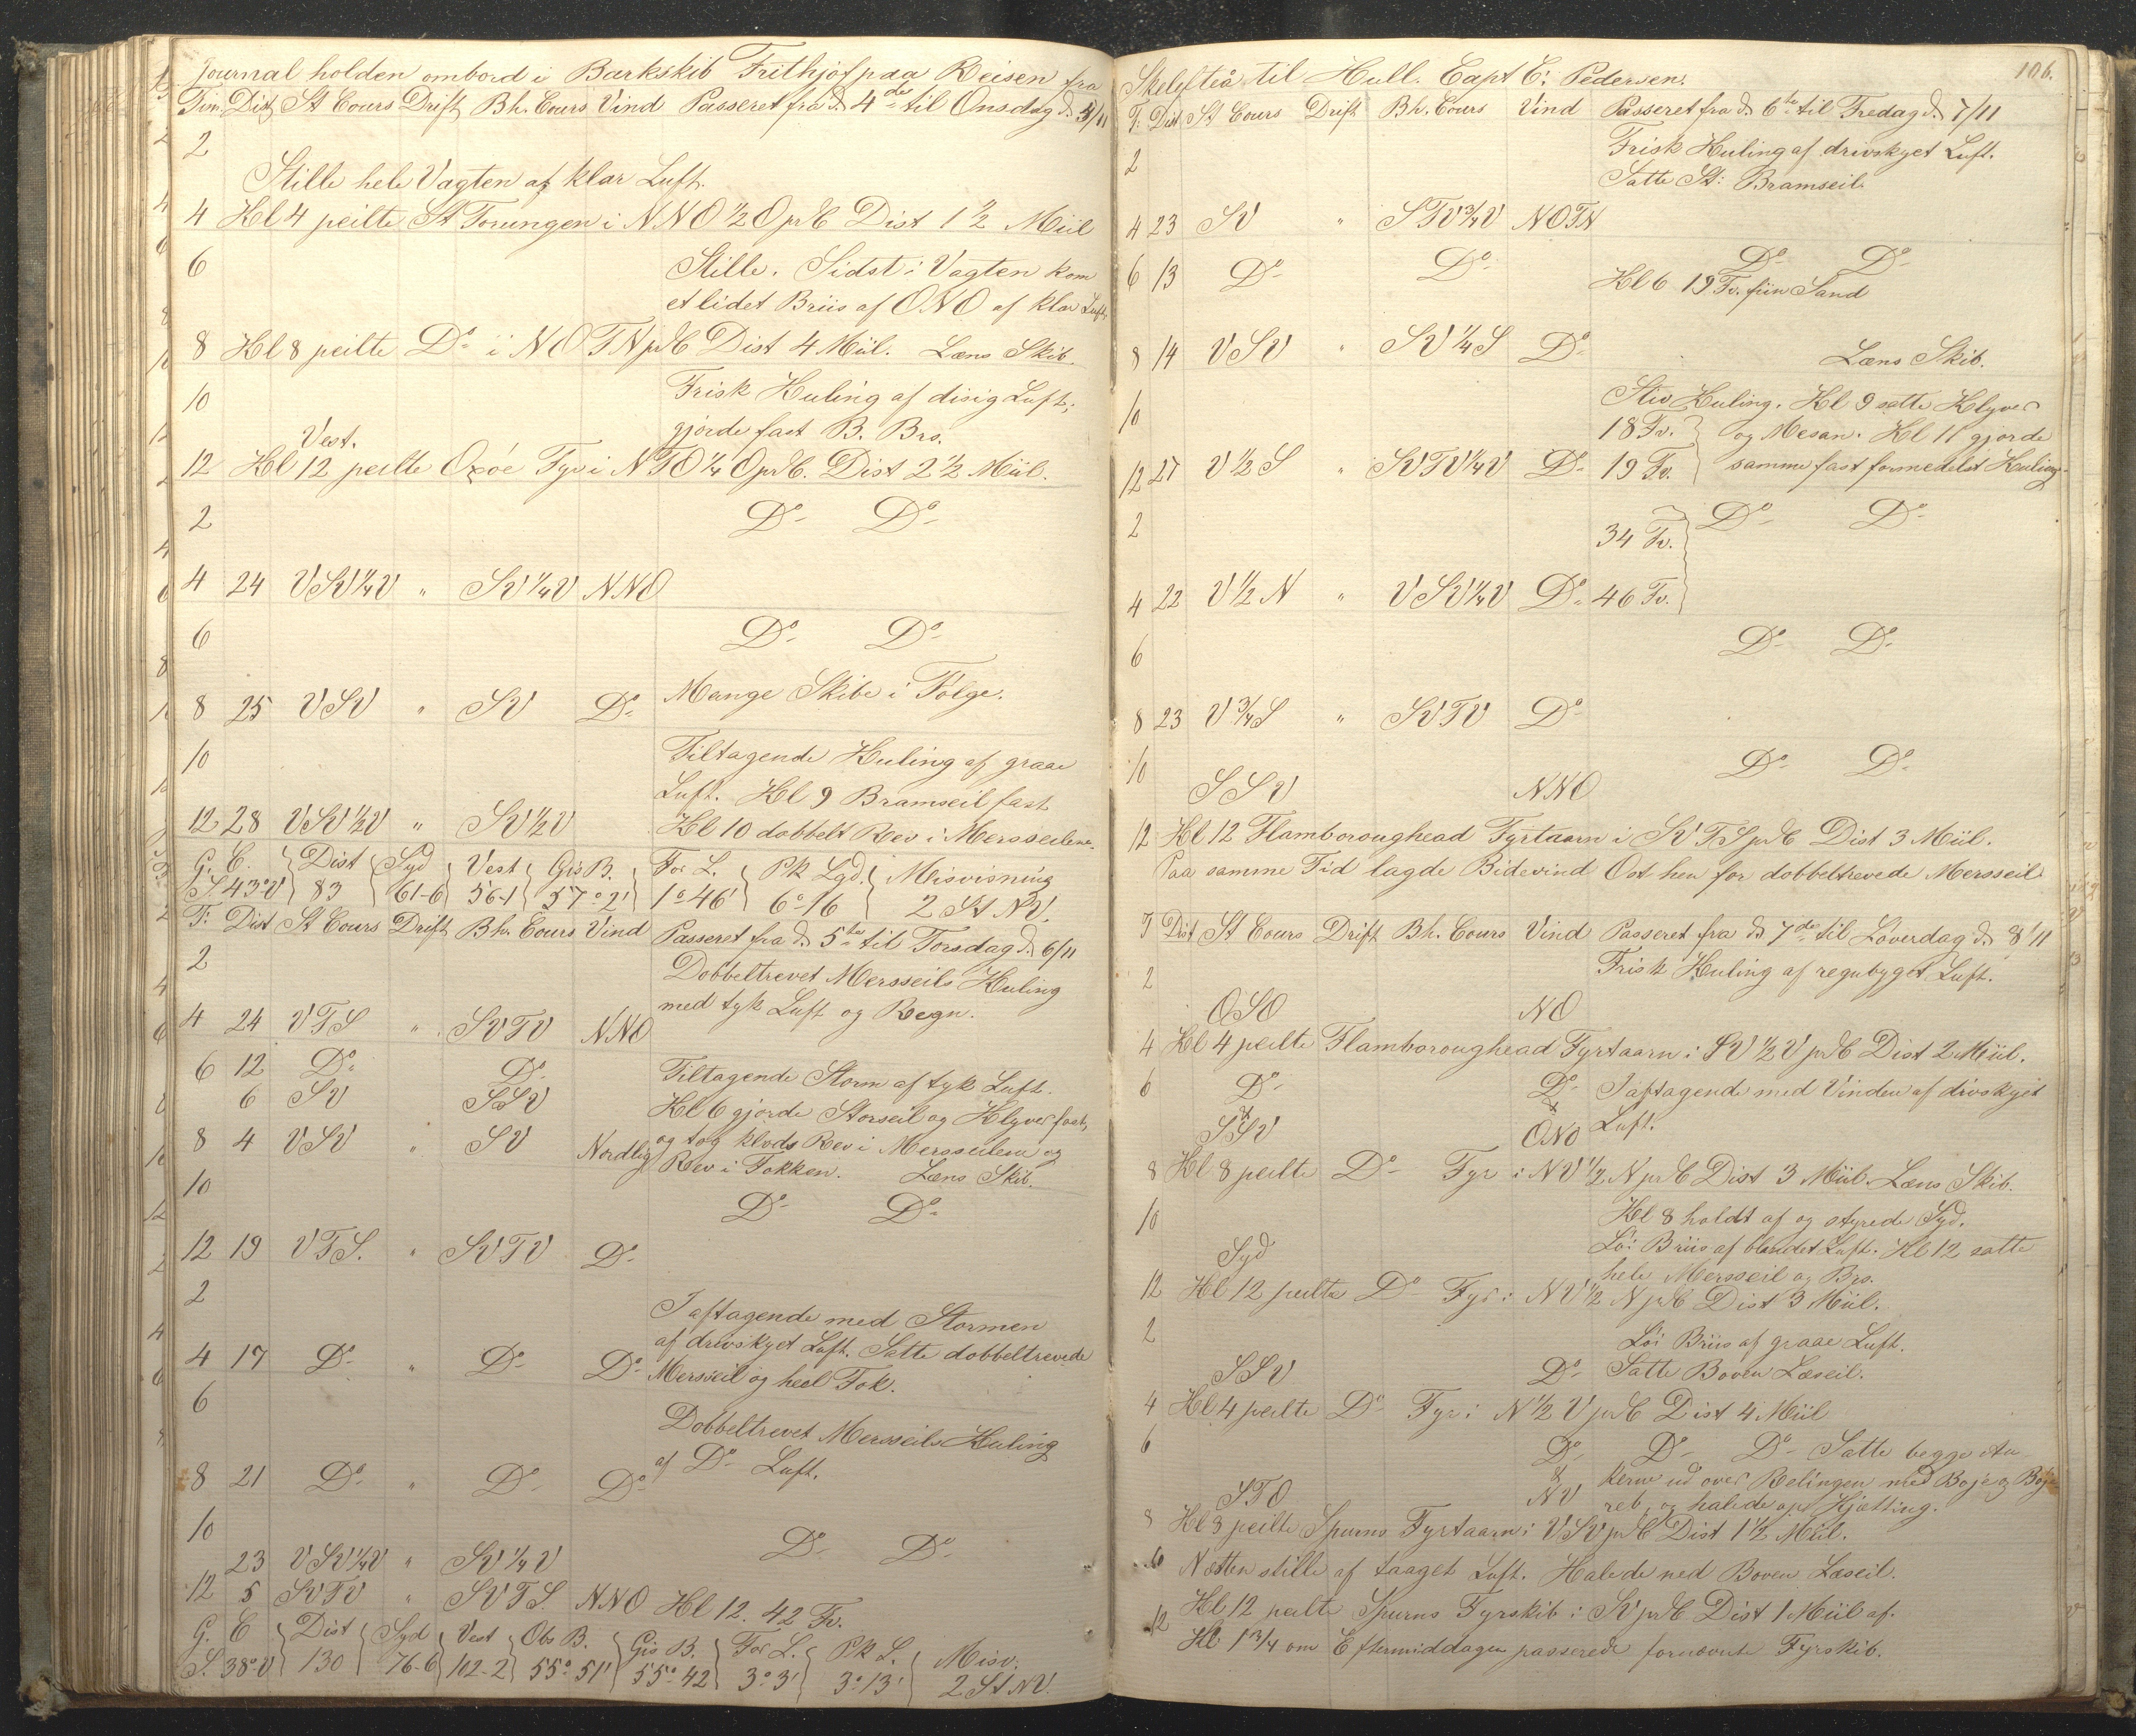 Journal holden ombord i Barkskib Frithjof paa Reisen fra
Tim. Dist St Cours Drift Bh. Cours Vind Passeret fra d. 4de til Onsdag d. 5/11
2
Stille hele Vagten af klar Luft.
4 Kl 4 peilte St Torungen i NNO 1/2 O pr C Dist 1 1/2 Miil
6 Stille. Sidst i Vagten kom
et lidet Briis af ONO af klar Luft.
8 Kl 8 peilte Do i NOTN pr C Dist 4 Miil. Læns Skib.
10 Frisk Kuling af disig Luft;
gjorde fast B. Brs.
Vest.
12 Kl 12 peilte Oxöe Fyr i NTO 1/4 O pr C. Dist 2 1/2 Miil.
2 Do Do
4 24 VSV 1/4 V " SV 1/4 V NNO
6 Do Do
Mange Skibe i Følge.
8 25 VSV " SV Do
10 Tiltagende Kuling af graae
Luft. Kl 9 Bramseil fast
12 28 VSV 1/2 V " SV 1/2 V Kl 10 dobbelt Rev i Mersseilene.
G. C. Dist Syd Vest Gis B. For L. Pk Lgd. Misvisning
S. 43° V 83 61-6 56-1 57° 2' 1° 46' 6°-16 2 St NV.
T: Dist St Cours Drift Bh. Cours Vind Passeret fra d. 5te til Torsdag d. 6/11
2 Dobbeltrevet Mersseils Kuling
med tyk Luft og Regn.
4 24 VTS " SVTV NNO
6 12 Do Do Tiltagende Storm af tyk Luft.
6 SV SSV Kl 6 gjorde Storseil og Klyver fast,
8 4 VSV " SV Nordlig og tog klods Rev i Mersseilene og
Rev i Fokken. Læns Skib.
10 Do Do
12 19 VTS. " SVTV Do
2 I aftagende med Stormen
af drivskyet Luft. Satte dobbeltrevede
4 17 Do " Do Do Mersseil og heel Fok.
6 Dobbeltrevet Mersseils Kuling
af Do Luft.
8 21 Do " Do Do
10 Do Do
23 VSV 1/4 V " SV 1/4 V
12 5 SVTV " SVTS. NNO Kl 12. 42 Fv.
G. C Dist Syd Vest Obs B. Gis B. For L. Pk L. Misv.
S. 38° V 130 76-6 102-2 55° 51' 55° 42 3° 3' 3° 13' 2 St NV.
106.
Skelefteå til Hull. Capt C: Pedersen.
T: Dist St Cours Drift Bh. Cours Vind Passeret fra d. 6te til Fredag d. 7/11
2 Frisk Kuling af drivskyet Luft.
Satte St: Bramseil.
4 23 SV " STV 3/4 V NOTN
6 13 Do Do Do Do
Kl 6 19 Fv. fiin Sand
8 14 VSV " SV 1/4 S Do Læns Skib.
10 Stiv Kuling. Kl 9 satte Klyver
18 Fv. og Mesan. Kl 11 gjorde
12 27 V 1/2 S " SVTV 1/4 V Do 19 Fv. samme fast formedelst Kuling.
2 Do Do
34 Fv.
4 22 V 1/2 N " VSV 1/4 V Do 46 Fv.
6 Do Do
8 23 V 3/4 S " SVTV Do
10 Do Do
SSV NNO
12 Kl 12 Flamboroughead Fyrtaarn i SVTS pr C Dist 3 Miil.
Paa samme Tid lagde Bidevind Ost hen for dobbeltrevede Mersseil
T Dist St Cours Drift Bh. Cours Vind Passeret fra d. 7de til Löverdag d. 8/11
2 Frisk Kuling af regnbyget Luft.
OSO NO
4 Kl 4 peilte Flamboroughead Fyrtaarn i SV 1/2 V pr C Dist 2 Miil.
6 Do Do I aftagende med Vinden af drivskyet
SSV ONO Luft.
8 Kl 8 peilte Do Fyr i NV 1/2 N pr C Dist 3 Miil. Læns Skib.
10 Kl 8 holdt af og styrede Syd.
Syd Löi Briis af blandet Luft. Kl 12 satte
hele Mersseil og Brs.
12 Kl 12 peilte Do Fyr i NV 1/2 N pr C Dist 3 Miil.
2 Löi Briis af graae Luft.
SSV Do Satte Boven Læseil.
4 Kl 4 peilte Do Fyr i N 1/2 V pr C Dist 4 Miil
6 Do Do Do Satte begge An
kerne ud over Relingen med Boje og Boje
STO NV reb, og halede op Kjætting.
8 Kl 8 peilte Spurns Fyrtaarn i VSV pr C Dist 1 1/2 Miil.
Næsten stille af taaget Luft. Halede ned Boven Læseil.
12 Kl 12 peilte Spurns Fyrskib i SV pr C Dist 1 Miil af.
Kl 1 3/4 om Eftermiddagen passerede fornævnte Fyrskib.